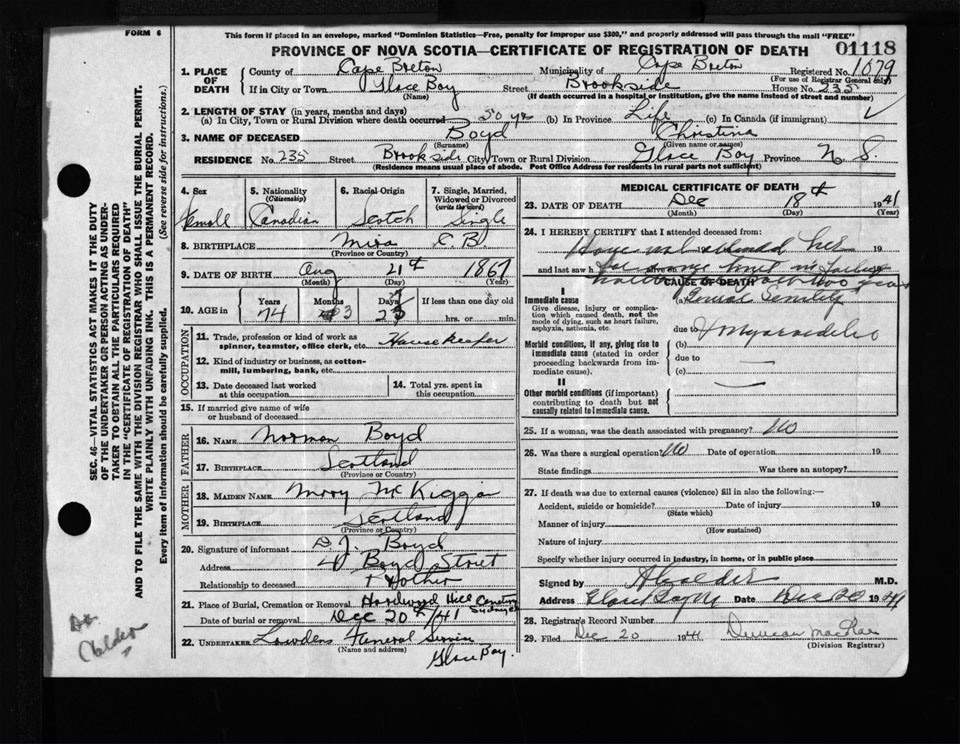 FORM 6
This form if placed in an envelope, marked "Dominion Statistics—Free, penalty for improper use $300," and properly addressed will pass through the mail "FREE"
PROVINCE OF NOVA SCOTIA—CERTIFICATE OF REGISTRATION OF DEATH 01118
1. PLACE OF DEATH
County of Cape Breton Municipality of Cape Breton Registered No. 1079
(For use of Registrar General only)
If in City or Town Glace Bay Street Brookside House No. 235
(Name) (If death occurred in a hospital or institution, give the name instead of street and number)
2. LENGTH OF STAY (in years, months and days)
(a) In City, Town or Rural Division where death occurred 50 yrs (b) In Province Life (c) In Canada (if immigrant)
3. NAME OF DECEASED Boyd Christina
(Surname) (Given name or names)
RESIDENCE No. 235 Street Brookside City, Town or Rural Division Glace Bay Province N. S.
(Residence means usual place of abode. Post Office Address for residents in rural parts not sufficient)
4. Sex 5. Nationality (Citizenship) 6. Racial Origin 7. Single, Married, Widowed or Divorced (write the word)
Female Canadian Scotch Single
8. BIRTHPLACE Mira C. B.
(Province or Country)
9. DATE OF BIRTH Aug 21th 1867
(Month) (Day) (Year)
10. AGE in Years Months Days If less than one day old
74 3 hrs. or min.
OCCUPATION
11. Trade, profession or kind of work as spinner, teamster, office clerk, etc. Housekeeper
12. Kind of industry or business, as cotton-mill, lumbering, bank, etc.
13. Date deceased last worked at this occupation
14. Total yrs. spent in this occupation
15. If married give name of wife or husband of deceased
FATHER
16. NAME Norman Boyd
17. BIRTHPLACE Scotland
(Province or Country)
MOTHER
18. MAIDEN NAME Mary McKiggan
19. BIRTHPLACE Scotland
(Province or Country)
20. Signature of informant D. J. Boyd
Address Boyd Street
Relationship to deceased
21. Place of Burial, Cremation or Removal Hardwood Hill Cemetery Sydney
Date of burial or removal Dec 20th/41
22. UNDERTAKER Lowdens Funeral Service
(Name and address)
Glace Bay.
MEDICAL CERTIFICATE OF DEATH
23. DATE OF DEATH Dec 18th 1941
(Month) (Day) (Year)
24. I HEREBY CERTIFY that I attended deceased from:
Have not attended her 19
and last saw h
CAUSE OF DEATH
I
Immediate cause
Give disease, injury or complication which caused death, not the mode of dying, such as heart failure, asphyxia, asthenia, etc.
(a) Senility
due to
Morbid conditions, if any, giving rise to immediate cause (stated in order proceeding backwards from immediate cause).
(b)
due to
(c)
II
Other morbid conditions (if important) contributing to death but not causally related to immediate cause.
25. If a woman, was the death associated with pregnancy? No
26. Was there a surgical operation? No Date of operation 19
State findings Was there an autopsy?
27. If death was due to external causes (violence) fill in also the following:—
Accident, suicide or homicide? Date of injury 19
(State which)
Manner of injury
(How sustained)
Nature of injury
Specify whether injury occurred in industry, in home, or in public place
Signed by M.D.
Address Glace Bay NS Date Dec 20 1941
28. Registrar's Record Number
29. Filed Dec 20 1941 Duncan
(Division Registrar)
SEC. 46—VITAL STATISTICS ACT MAKES IT THE DUTY
OF THE UNDERTAKER OR PERSON ACTING AS UNDER-
TAKER TO OBTAIN ALL THE PARTICULARS REQUIRED
IN THE "CERTIFICATE OF REGISTRATION OF DEATH"
AND TO FILE THE SAME WITH THE DIVISION REGISTRAR WHO SHALL ISSUE THE BURIAL PERMIT.
WRITE PLAINLY WITH UNFADING INK. THIS IS A PERMANENT RECORD.
Every item of information should be carefully supplied. (See reverse side for instructions.)
Dr.
Calder